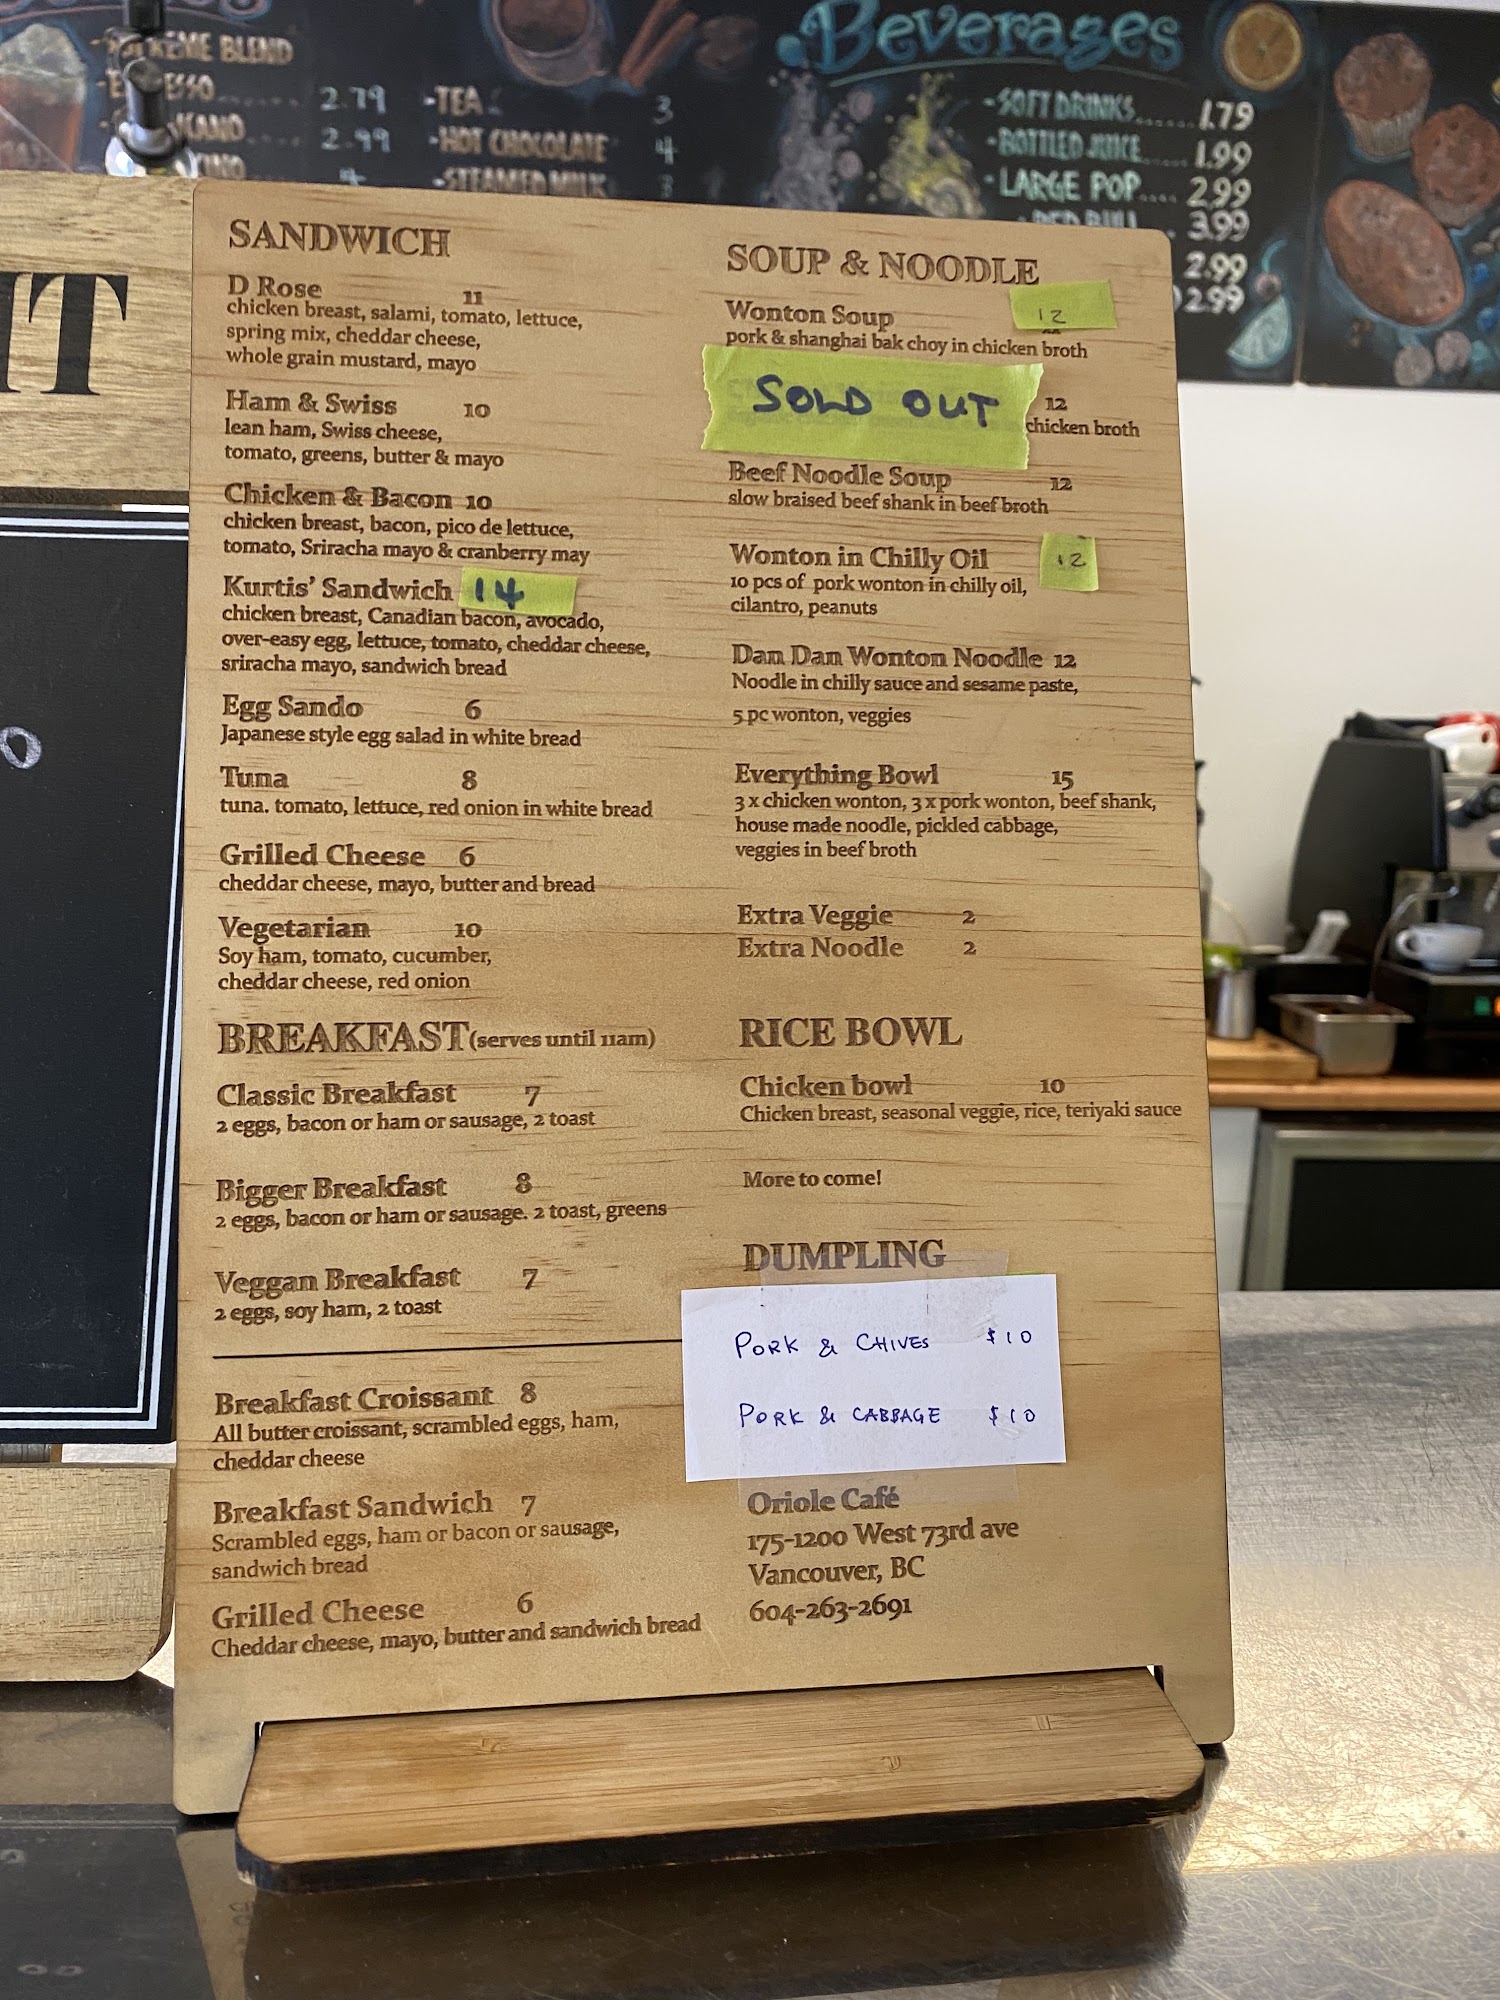 Beverages
XTREME BLEND
2.79
2.99
-TEA
3
-HOT CHOCOLATE
4
-STEAMED MILK
3
-SOFT DRINKS...... 1.79
-BOTTLED JUICE..... 1.99
-LARGE POP.... 2.99
RED BULL 3.99
2.99
2.99
SANDWICH
D Rose 11
chicken breast, salami, tomato, lettuce,
spring mix, cheddar cheese,
whole grain mustard, mayo
Ham & Swiss 10
lean ham, Swiss cheese,
tomato, greens, butter & mayo
Chicken & Bacon 10
chicken breast, bacon, pico de lettuce,
tomato, Sriracha mayo & cranberry may
Kurtis' Sandwich 14
chicken breast, Canadian bacon, avocado,
over-easy egg, lettuce, tomato, cheddar cheese,
sriracha mayo, sandwich bread
Egg Sando 6
Japanese style egg salad in white bread
Tuna 8
tuna. tomato, lettuce, red onion in white bread
Grilled Cheese 6
cheddar cheese, mayo, butter and bread
Vegetarian 10
Soy ham, tomato, cucumber,
cheddar cheese, red onion
BREAKFAST (serves until 11am)
Classic Breakfast 7
2 eggs, bacon or ham or sausage, 2 toast
Bigger Breakfast 8
2 eggs, bacon or ham or sausage. 2 toast, greens
Veggan Breakfast 7
2 eggs, soy ham, 2 toast
Breakfast Croissant 8
All butter croissant, scrambled eggs, ham,
cheddar cheese
Breakfast Sandwich 7
Scrambled eggs, ham or bacon or sausage,
sandwich bread
Grilled Cheese 6
Cheddar cheese, mayo, butter and sandwich bread
SOUP & NOODLE
Wonton Soup 12
pork & shanghai bak choy in chicken broth
SOLD OUT 12
chicken broth
Beef Noodle Soup 12
slow braised beef shank in beef broth
Wonton in Chilly Oil 12
10 pcs of pork wonton in chilly oil,
cilantro, peanuts
Dan Dan Wonton Noodle 12
Noodle in chilly sauce and sesame paste,
5 pc wonton, veggies
Everything Bowl 15
3 x chicken wonton, 3 x pork wonton, beef shank,
house made noodle, pickled cabbage,
veggies in beef broth
Extra Veggie 2
Extra Noodle 2
RICE BOWL
Chicken bowl 10
Chicken breast, seasonal veggie, rice, teriyaki sauce
More to come!
DUMPLING
PORK & CHIVES $10
PORK & CABBAGE $10
Oriole Café
175-1200 West 73rd ave
Vancouver, BC
604-263-2691